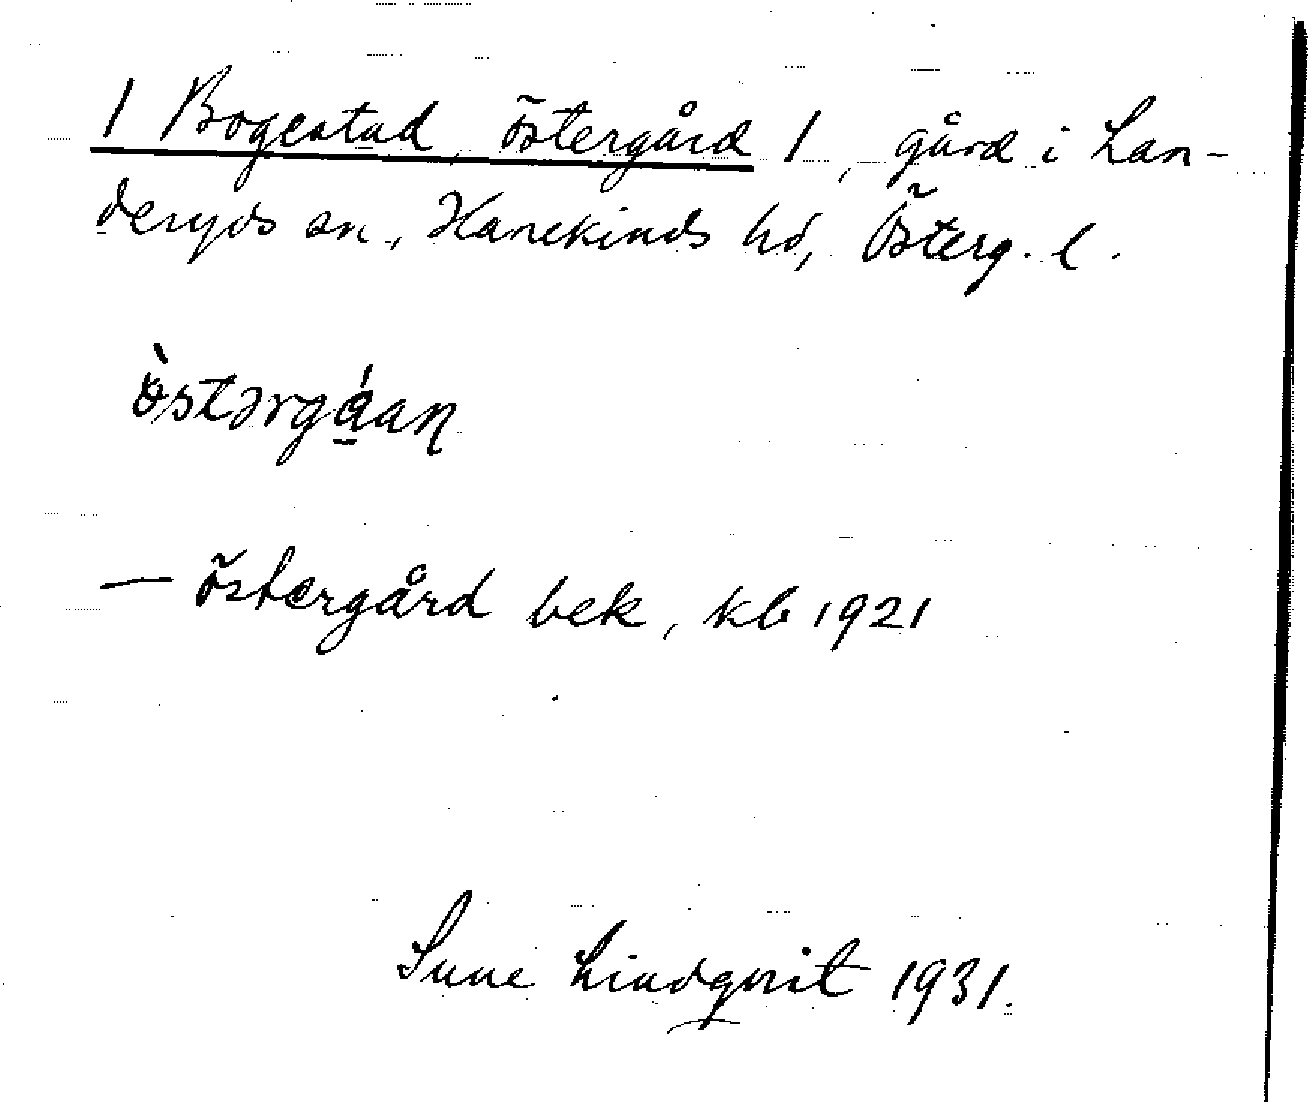 / Bogestad, Östergård /, gård i Lan-
deryds sn., Hanekinds hd, Österg. l.
ö̀stərgáan
— Östergård bek, kb 1921
Sune Lindqvist 1931.